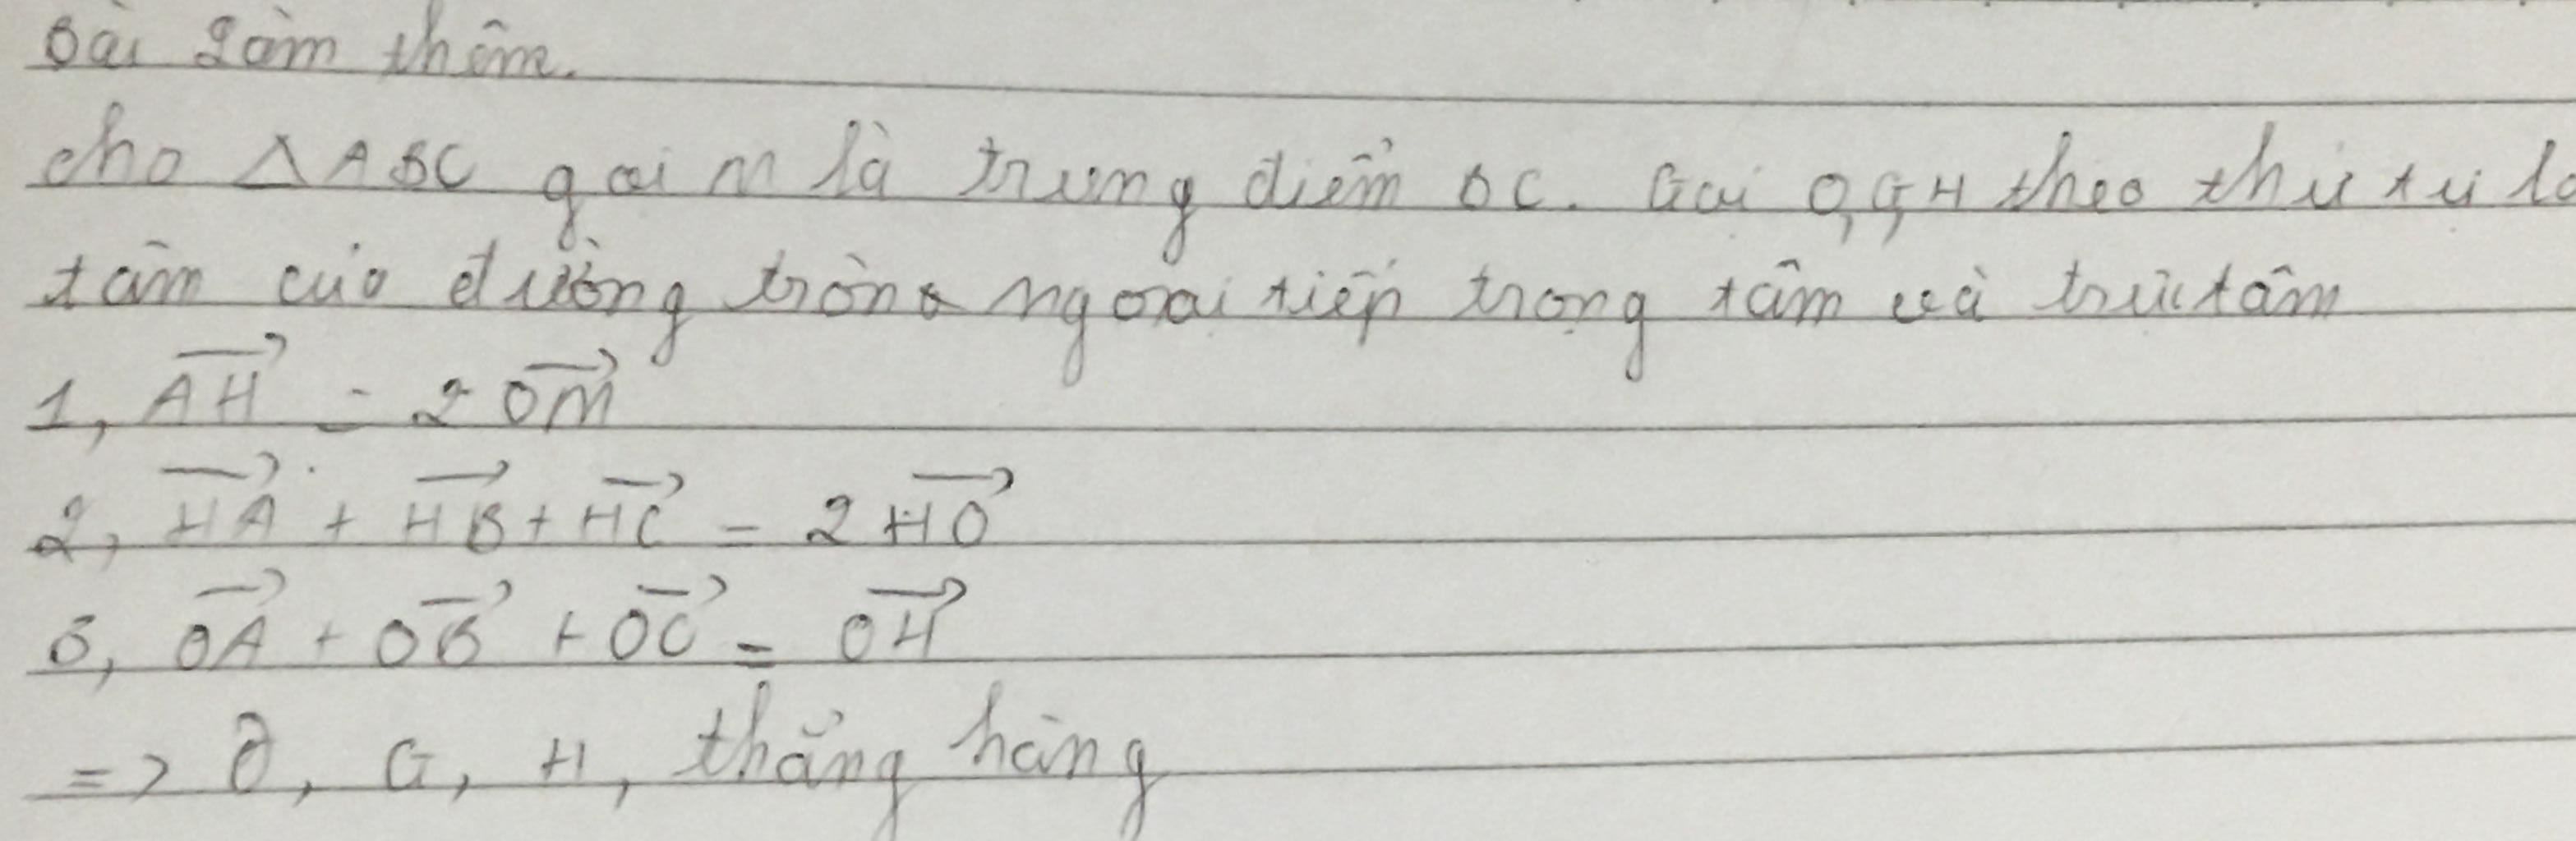 Bài làm thêm.
cho △ABC gọi M là trung điểm BC. Gọi O, G, H theo thứ tự là
tâm của đường tròn ngoại tiếp trọng tâm và trực tâm
1, \overrightarrow{AH} = 2\overrightarrow{OM}
2, \overrightarrow{HA} + \overrightarrow{HB} + \overrightarrow{HC} = 2\overrightarrow{HO}
3, \overrightarrow{OA} + \overrightarrow{OB} + \overrightarrow{OC} = \overrightarrow{OH}
=> O, G, H, thẳng hàng